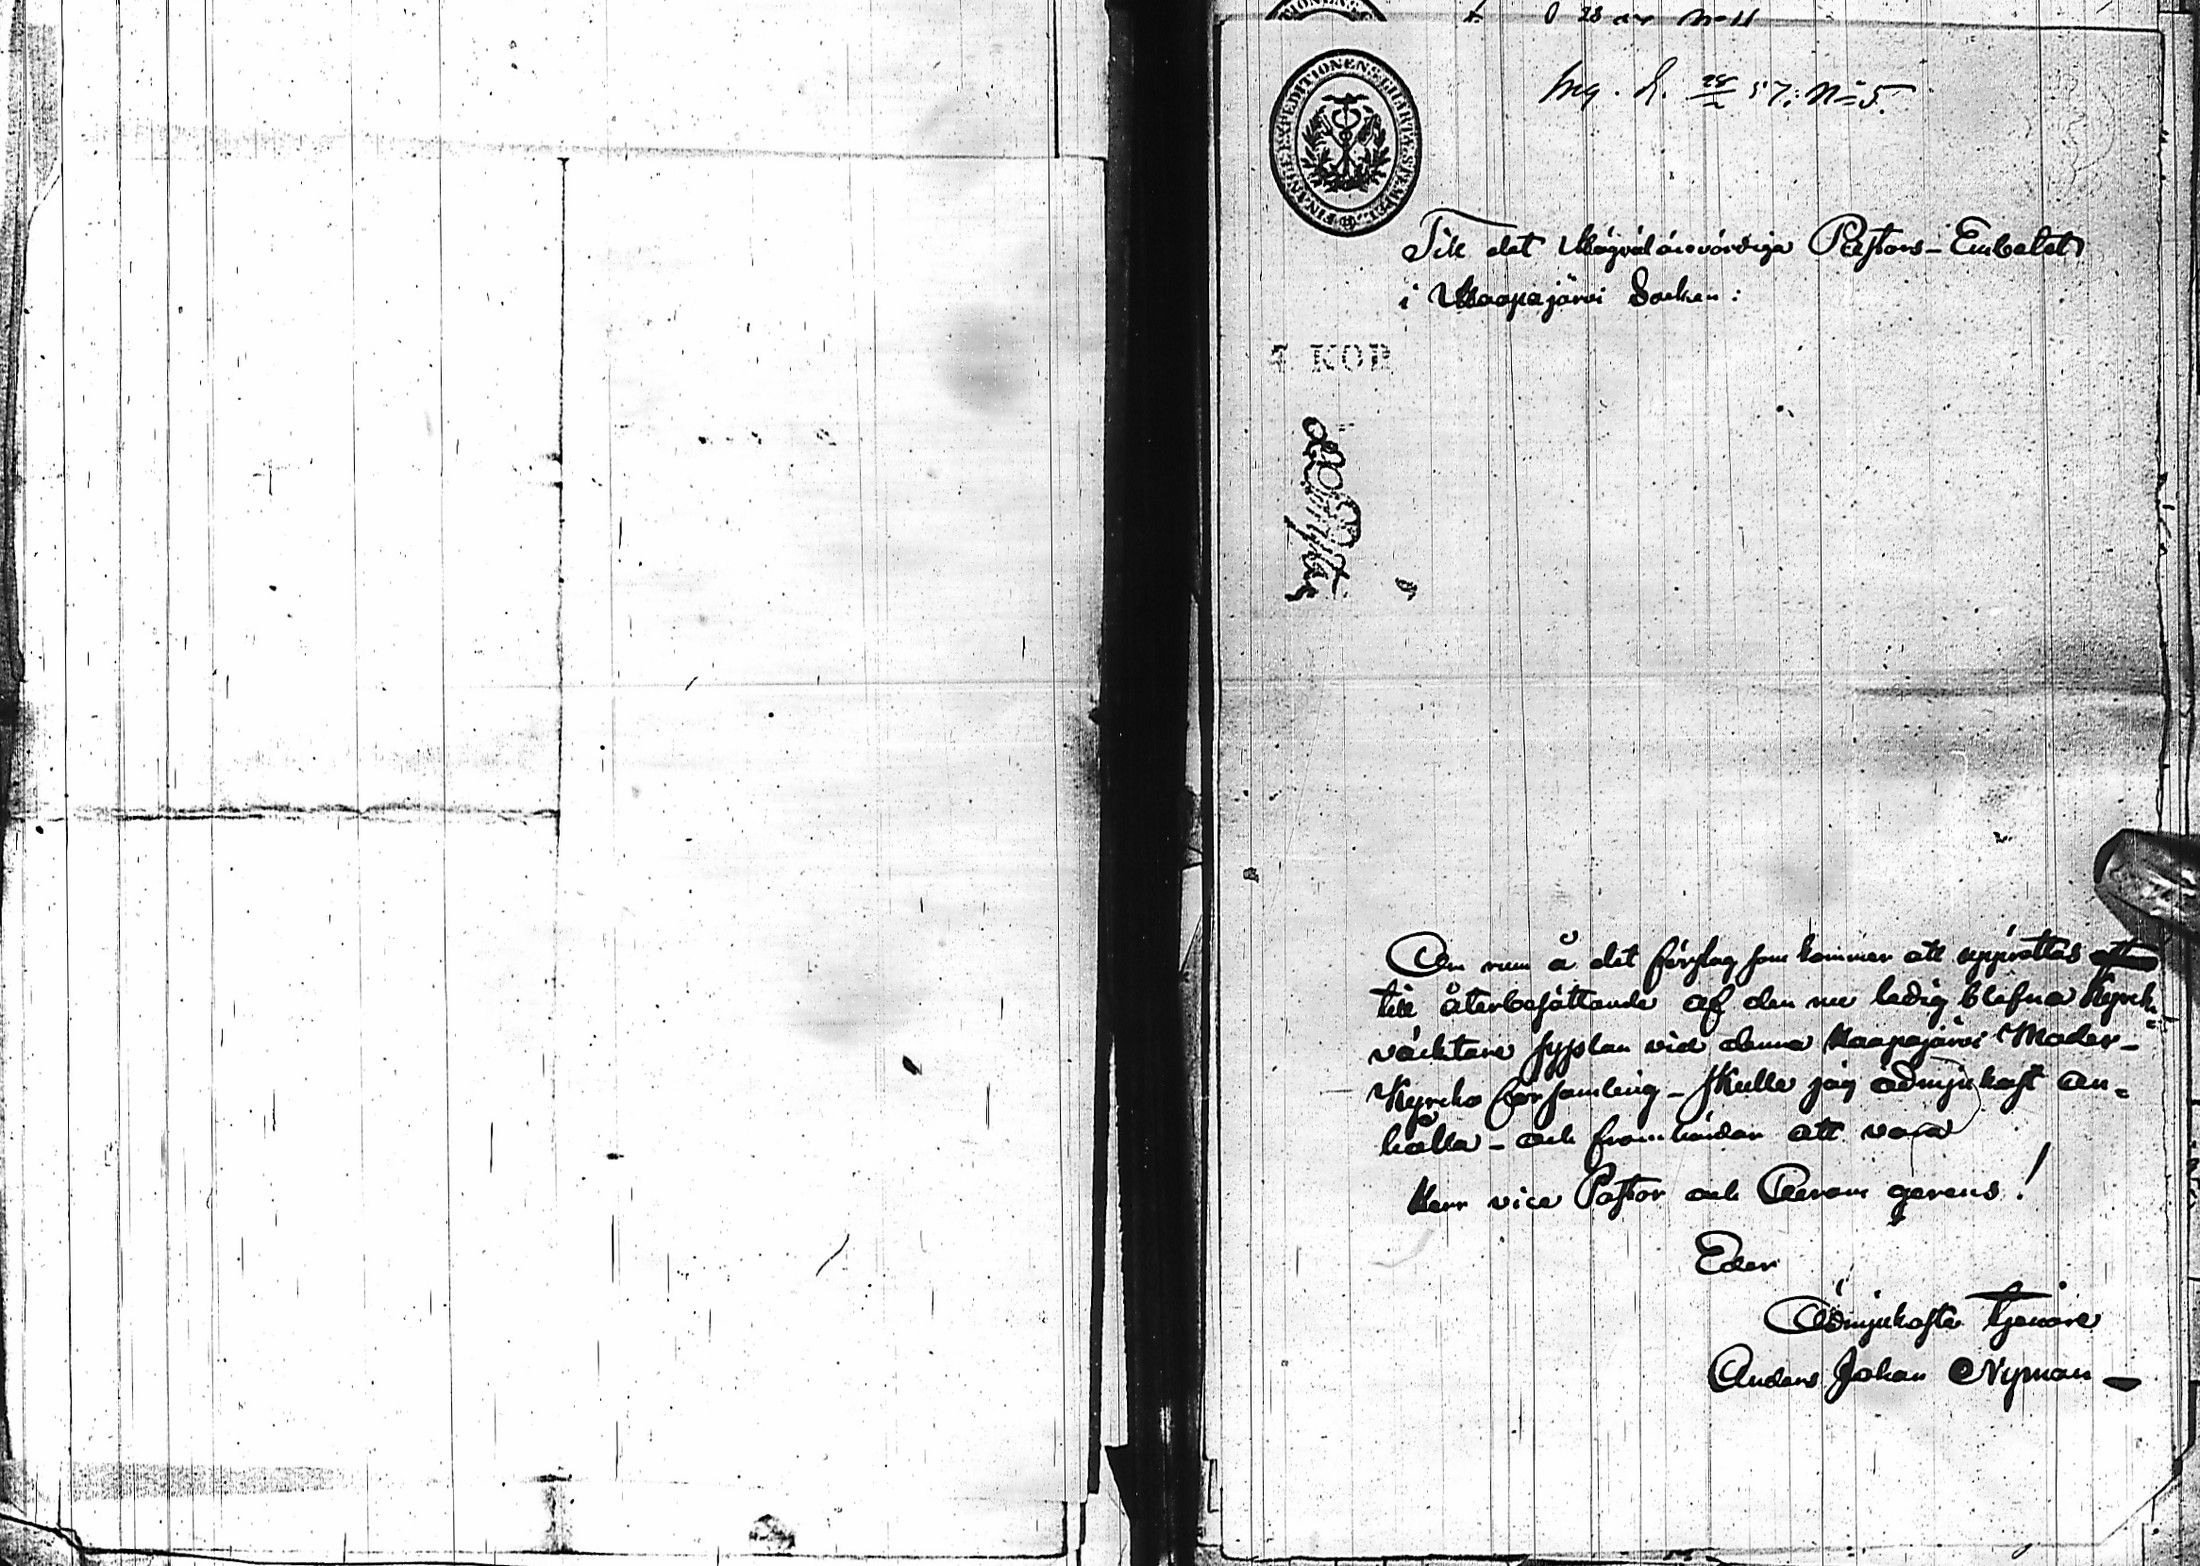 Ing. d. 28/2 57; N=5.
FINANCE EXPEDITIONENS CHARTÆ STEMPEL
Till det Högvälärevördiga Pastors-Embetet
i Haapajärvi Socken:
KOP
Om rum å det förslag som kommer att upprättas
till återbesättande af den nu ledig blefna Kyrck=
väcktare sysslan vid denna Haapajärvi Moder-
Kyrcko församling - skulle jag ödmjukast an=
hålla - och framhärdar att vara
Herr vice Pastor och Curam gerens!
Eder
Ödmjukaste tjenare
Anders Johan Nyman